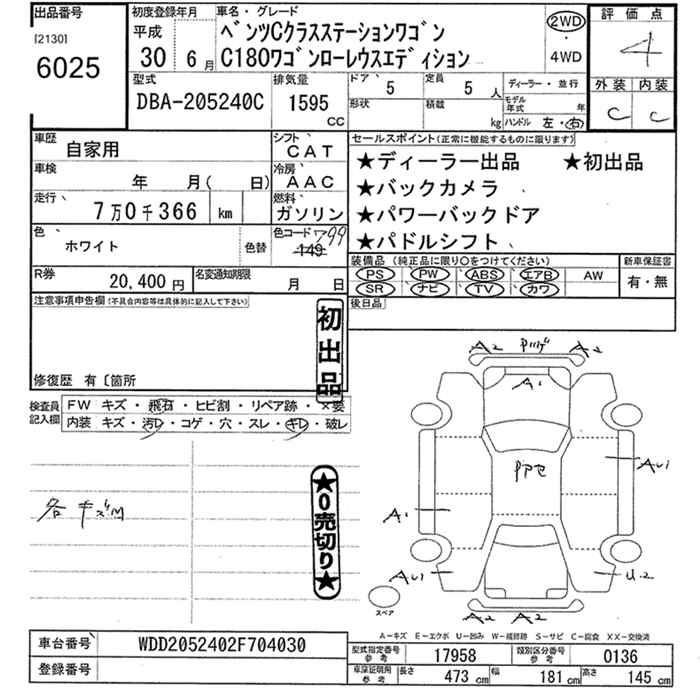 出品番号 初度登録年月 車名・グレード 評価点
[2130] 平成 ベンツCクラスステーションワゴン 2WD 4
6025 30年 6月 C180ワゴンローレウスエディション ・4WD
型式 排気量 ドア 5 定員 5人 ディーラー・並行 外装 内装
DBA-205240C 1595cc 形状 積載 kg モデル年式 年 C C
ハンドル 左・右
車歴 自家用 シフト CAT セールスポイント(正常に機能するものに限ります)
車検 年 月( 日) 冷房 AAC ★ディーラー出品 ★初出品
走行 7万0千366 km 燃料 ガソリン ★バックカメラ
★パワーバックドア
色 ホワイト 色替 色コード 149 799 ★パドルシフト
R券 20,400円 名変通知期限 月 日 装備品(純正品に限り○をつけてください) 新車保証書
PS PW ABS エアB AW 有・無
SR ナビ TV カワ
注意事項申告欄(不具合内容等は具体的に記入して下さい) 後日品
初出品
修復歴 有〔箇所
検査員記入欄 FW キズ・飛石・ヒビ割・リペア跡・×要
内装 キズ・汚レ・コゲ・穴・スレ・キレ・破レ
A2 A2
A1
AU1
A1
AU1 U2
A2 A2
各キズM
★0売切り★
スペア
A-キズ E-エクボ U-凹み W-補修跡 S-サビ C-腐食 XX-交換済
車台番号 WDD2052402F704030 型式指定番号参考 17958 類別区分番号参考 0136
登録番号 車庫証明用参考 長さ 473cm 幅 181cm 高さ 145cm